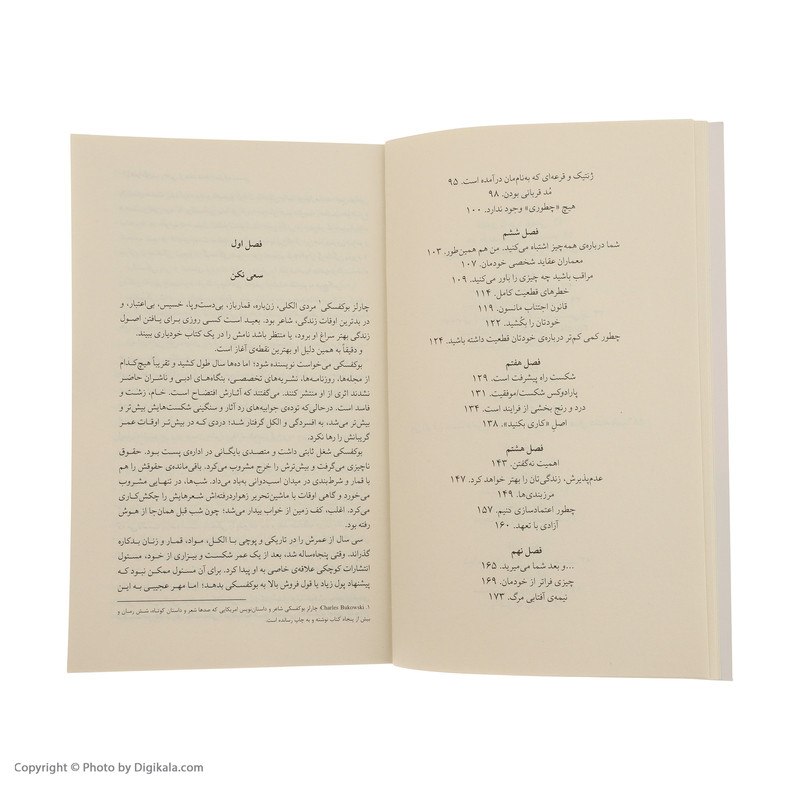 ژنتیک و قرعه‌ای که به‌نام‌مان درآمده است. ۹۵
مُد قربانی بودن. ۹۸
هیچ «چطوری» وجود ندارد. ۱۰۰
فصل ششم
شما درباره‌ی همه‌چیز اشتباه می‌کنید. من هم همین‌طور. ۱۰۳
معماران عقاید شخصی خودمان. ۱۰۷
مراقب باشید چه چیزی را باور می‌کنید. ۱۰۹
خطرهای قطعیت کامل. ۱۱۴
قانون اجتناب مانسون. ۱۱۹
خودتان را بکُشید. ۱۲۲
چطور کمی کم‌تر درباره‌ی خودتان قطعیت داشته باشید. ۱۲۴
فصل هفتم
شکست راه پیشرفت است. ۱۲۹
پارادوکس شکست/موفقیت. ۱۳۱
درد و رنج بخشی از فرایند است. ۱۳۴
اصلِ «کاری بکنید». ۱۳۸
فصل هشتم
اهمیت نه‌گفتن. ۱۴۳
عدم‌پذیرش، زندگی‌تان را بهتر خواهد کرد. ۱۴۷
مرزبندی‌ها. ۱۴۹
چطور اعتمادسازی کنیم. ۱۵۷
آزادی با تعهد. ۱۶۰
فصل نهم
...و بعد شما می‌میرید. ۱۶۵
چیزی فراتر از خودمان. ۱۶۹
نیمه‌ی آفتابی مرگ. ۱۷۳
فصل اول
سعی نکن
چارلز بوکفسکی۱ مردی الکلی، زن‌باره، قمارباز، بی‌دست‌وپا، خسیس، بی‌اعتبار، و
در بدترین اوقات زندگی، شاعر بود. بعید است کسی روزی برای یافتن اصول
زندگی بهتر سراغ او برود، یا منتظر باشد نامش را در یک کتاب خودیاری ببیند.
و دقیقاً به همین دلیل او بهترین نقطه‌ی آغاز است.
بوکفسکی می‌خواست نویسنده شود؛ اما ده‌ها سال طول کشید و تقریباً هیچ‌کدام
از مجله‌ها، روزنامه‌ها، نشریه‌های تخصصی، بنگاه‌های ادبی و ناشران حاضر
نشدند اثری از او منتشر کنند. می‌گفتند که آثارش افتضاح است. خام، زشت و
فاسد است. درحالی‌که توده‌ی جوابیه‌های رد آثار و سنگینی شکست‌هایش بیش‌تر و
بیش‌تر می‌شد، به افسردگی و الکل گرفتار شد؛ دردی که در بیش‌تر اوقات عمر
گریبانش را رها نکرد.
بوکفسکی شغل ثابتی داشت و متصدی بایگانی در اداره‌ی پست بود. حقوق
ناچیزی می‌گرفت و بیش‌ترش را خرج مشروب می‌کرد. باقی‌مانده‌ی حقوقش را هم
با قمار و شرط‌بندی در میدان اسب‌دوانی به‌باد می‌داد. شب‌ها، در تنهایی مشروب
می‌خورد و گاهی اوقات با ماشین‌تحریر زهواردررفته‌اش شعرهایش را چکش‌کاری
می‌کرد. اغلب، کف زمین از خواب بیدار می‌شد؛ چون شب قبل همان‌جا از هوش
رفته بود.
سی سال از عمرش را در تاریکی و پوچی با الکل، مواد، قمار و زنان بدکاره
گذراند. وقتی پنجاه‌ساله شد، بعد از یک عمر شکست و بیزاری از خود، مسئول
انتشارات کوچکی علاقه‌ی خاصی به او پیدا کرد. برای آن مسئول ممکن نبود که
پیشنهاد پول زیاد یا قول فروش بالا به بوکفسکی بدهد؛ اما مهر عجیبی به این
۱. Charles Bukowski چارلز بوکفسکی شاعر و داستان‌نویس امریکایی که صدها شعر و داستان کوتاه، شش رمان و
بیش از پنجاه کتاب نوشته و به چاپ رسانده است.
Copyright © Photo by Digikala.com